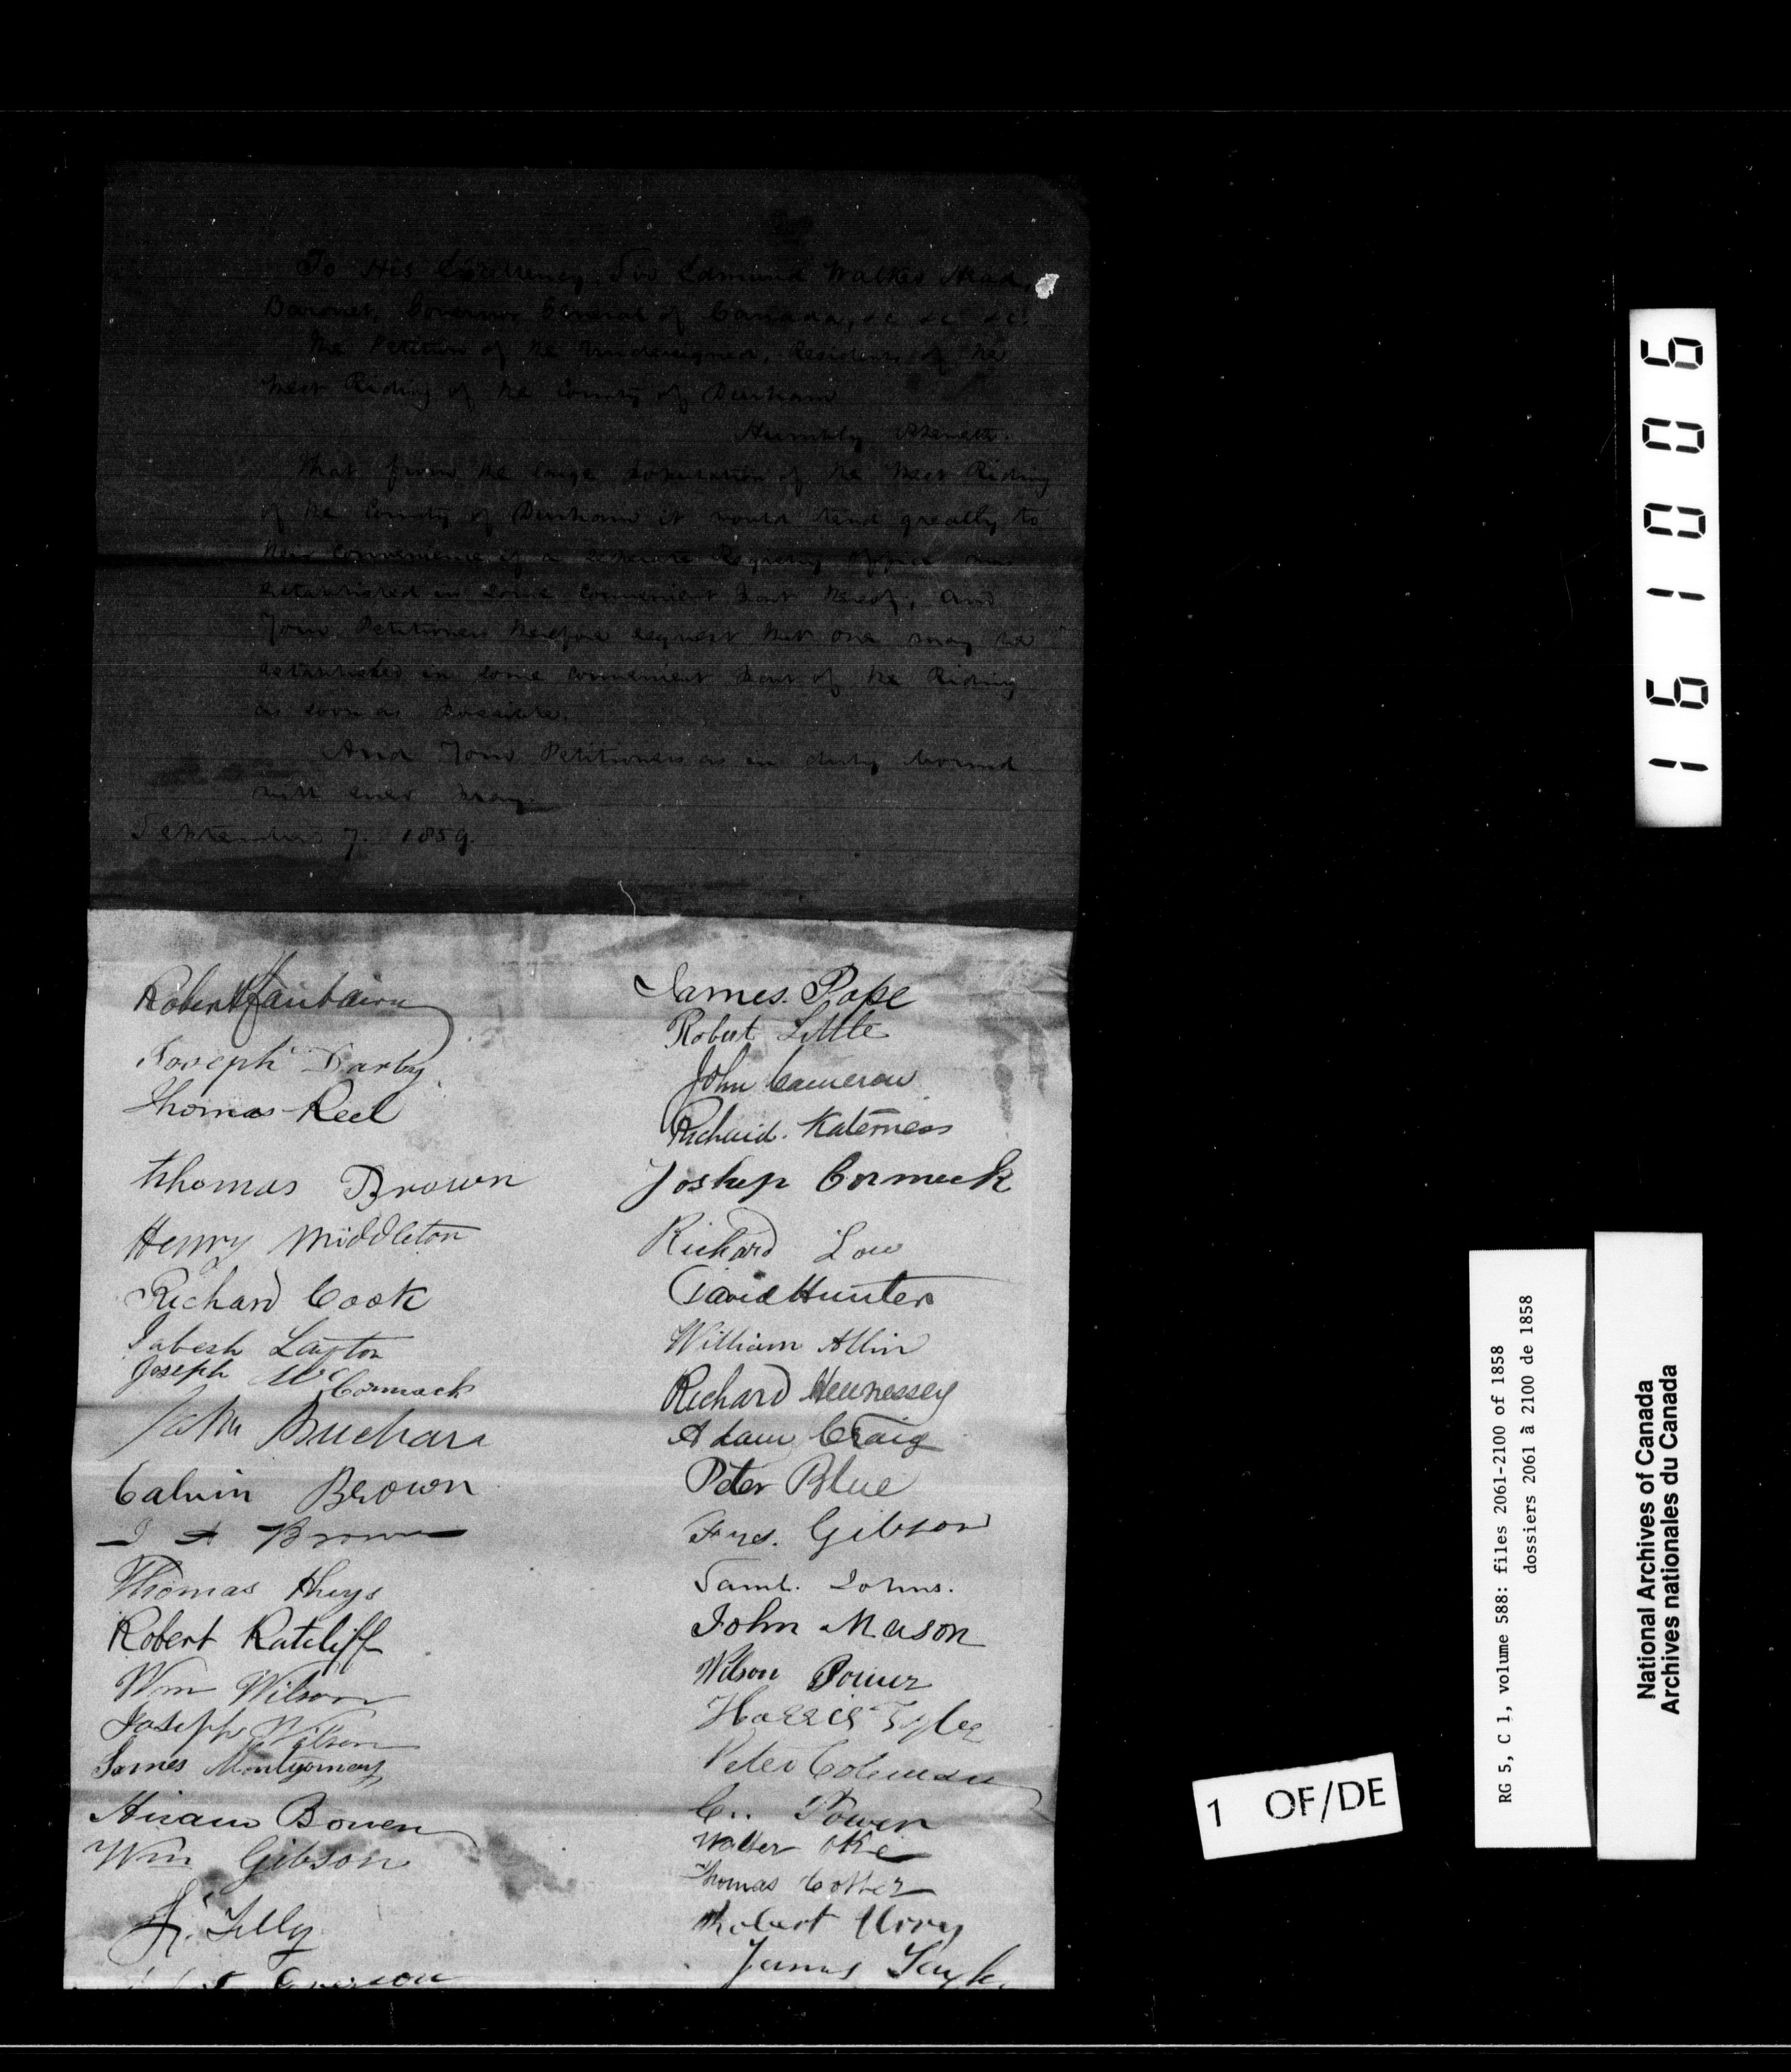 To His Excellency Sir Edmund Walker Head,
Baronet, Governor General of Canada, &c &c &c.
The Petition of the Undersigned, Residents of the
West Riding of the County of Durham
Humbly Sheweth.
That from the large population of the West Riding
of the County of Durham it would tend greatly to
their convenience if a separate Registry Office was
established in some convenient part thereof; and
Your Petitioners therefore request that one may be
established in some convenient part of the Riding
as soon as possible.
And Your Petitioners as in duty bound
will ever pray.
September 7. 1859.
Robert Fairbairn
Joseph Darby
Thomas Reel
Thomas Brown
Henry Middleton
Richard Cook
Jabesh Layton
Joseph McCormack
John
Calvin Brown
Brown
Thomas Heys
Robert Ratcliff
Wm Wilson
Joseph Wilson
James Montgomery
Hiram Bowen
Wm Gibson
Tilly
James Pope
Robert Little
John Cameron
Richard. Katerness
Joshep Cormeck
Richard Low
David Hunter
William Allin
Richard Hennessey
Adam Craig
Peter Blue
Gibson
Saml. Johns.
John Mason
Wilson Power
Harris Tyler
Peter Coleman
C. Power
Walter Oke
Thomas Cotter
Robert
James
161006
RG 5, C 1, volume 588: files 2061-2100 of 1858
dossiers 2061 à 2100 de 1858
National Archives of Canada
Archives nationales du Canada
1 OF/DE